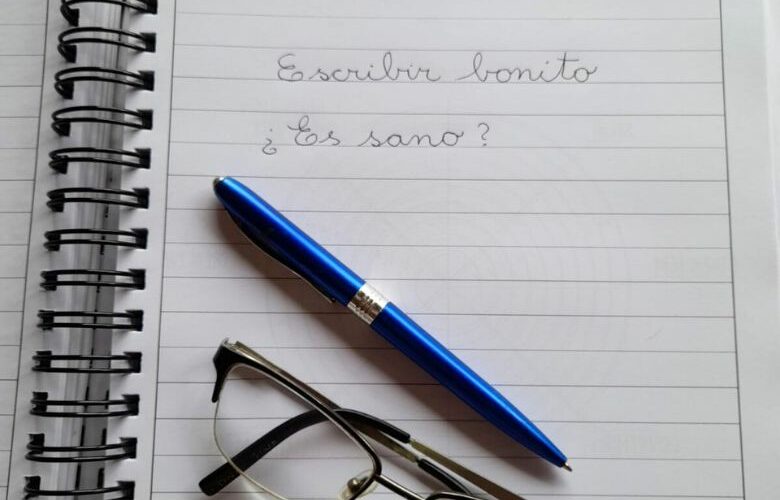 Escribir bonito
¿Es sano?